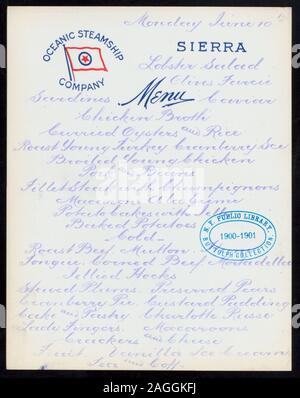 Monday June 10th
OCEANIC STEAMSHIP
COMPANY
SIERRA
Lobster Salad
Olives Farcie
Sardines Menu Caviar
Chicken Broth
Curried Oysters and Rice
Roast Young Turkey Cranberry Sce
Broiled Young Chicken
Pork & Beans
Fillet Steak with Champignons
Macaroni
Potato Cakes
Baked Potatoes
Cold
Roast Beef Mutton
Tongue Corned Beef Mortadella
Jellied Hocks
Stewed Plums Preserved Pears
Cranberry Pie Custard Pudding
Cake and Pastry Charlotte Russe
Lady Fingers Macaroons
Crackers and Cheese
Fruit Vanilla Ice Cream
Tea and Coff
N.Y. PUBLIC LIBRARY
1900-1901
BUTTOLPH COLLECTION
a
alamy
Image ID: 2AGGKFJ
www.alamy.com